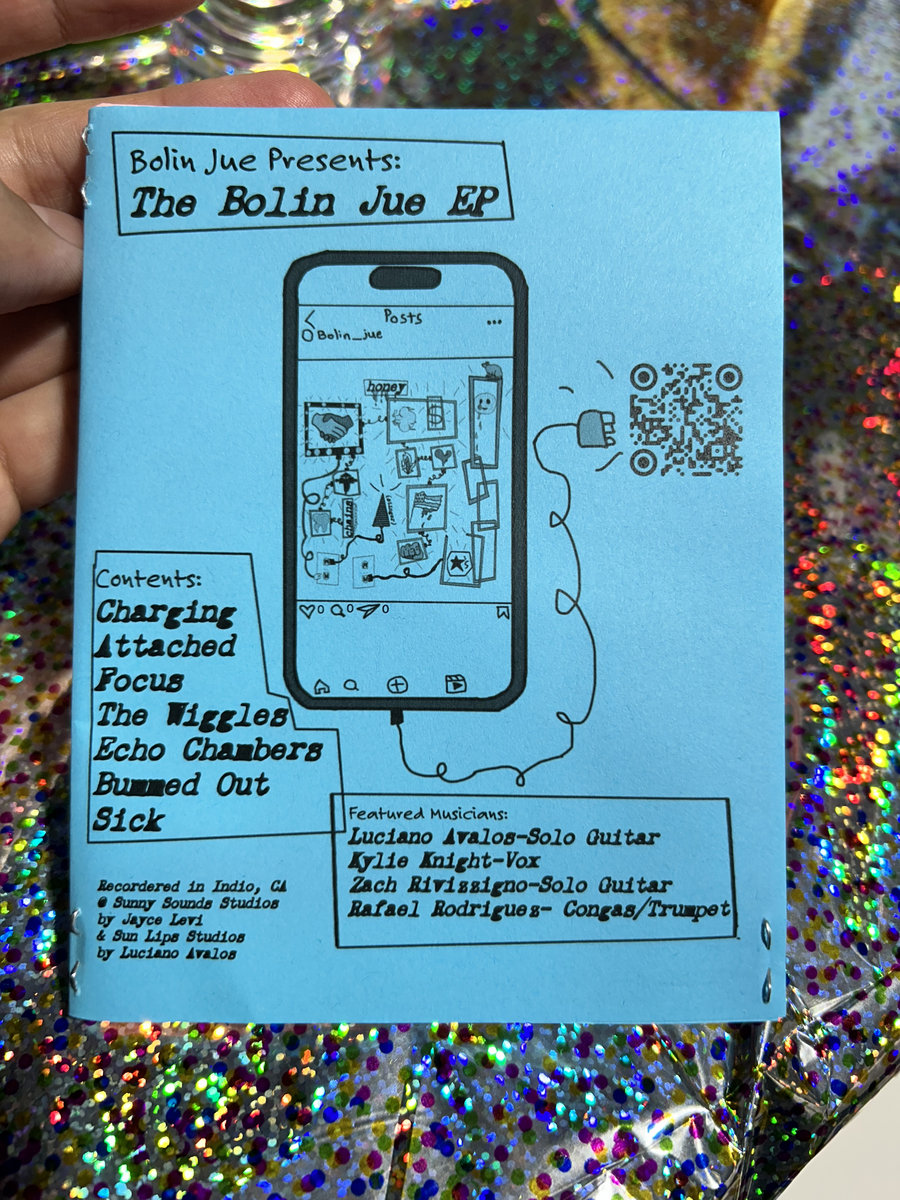 Bolin Jue Presents:
The Bolin Jue EP
Posts
Bolin_jue
honey
chains
0 0 0
Contents:
Charging
Attached
Focus
The Wiggles
Echo Chambers
Bummed Out
Sick
Featured Musicians:
Luciano Avalos-Solo Guitar
Kylie Knight-Vox
Zach Rivizzigno-Solo Guitar
Rafael Rodriguez- Congas/Trumpet
Recordered in Indio, CA
@ Sunny Sounds Studios
by Jayce Levi
& Sun Lips Studios
by Luciano Avalos